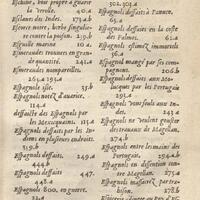 Eschine, bon propre à guarir
la Verole. 40.a
Esclaues des Indes. 173.a
Escorce mere, herbe singuliere
contre la poison. 209.b
Esguille marine 10.a
Esmeraudes trouuees en grande
quantité. 241.a
Esmeraudes nompareilles.
264.a 295.a
Espagnole isle. 33.b
Espagnols meurtriz
114.a
deffaicte des Espagnols
par les Mexiquains. 115.a
Espagnols deffaits par les Indiens
en plusieurs endroits.
319.b
Espagnols deffaits. 249.a
444.b
Espagnols deffaits 447.
448.a
Espagnols 800. en guerre.
302. 301.a
Espagnols deffaits à l'auaco.
65.a
Espagnols deffaits en la coste
des Palmes. 61.a
Espagnols estimez immortels
56.a
Espagnol mangé par ses compagnons.
206.b
Espagnols deffaits aux Moluques
par les Portugais
291.a
Espagnols seuls aux Indes.
243.a
Espagnols ne veulent gouster
des trauaux de Magellan.
274.b
Espagnols entre les mains des
Portugais. 294.a
Espagnols en dissention contre
Magellan. 275.a
Espagnols massacrez par trahison.
278.b